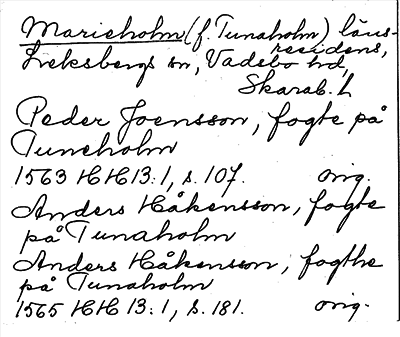 Marieholm (f. Tunaholm) läns-
residens,
Leksbergs sn, Vadsbo hd,
Skarab. L
Peder Joensson, fogte på
Tuneholm
1563 HH 13:1, s. 107. orig.
Anders Håkensson, fogte
på Tunaholm
Anders Håkansson, fogthe
på Tunaholm
1565 HH 13:1, s. 181. orig.